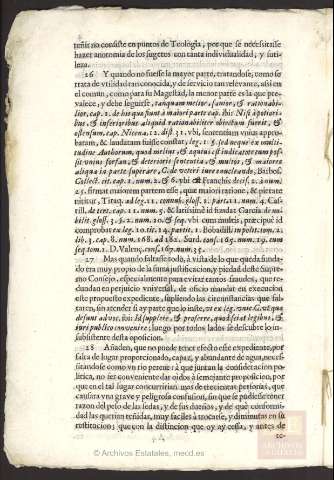 tenis no consiste en puntos de Teologia, por que se necessitasse
hazer anotomia de los sugetos con tanta individualidad, y suti-
leza.
26 Y quando no fuesse la mayor parte, tratandose, como se
trata de vtilidad tan conocida, y de servicio tan relevante, assi en
el comun, como para su Magestad, la menor parte es la que pre-
valece, y debe seguirse, tanquam melior, sanior, & rationabi-
lior, cap. 1. de his quæ fiunt à maiori parte cap. ibi Nisi à potiori-
bus, & inferioribus aliquid rationabiliter obiectum fuerit, &
ostensum. cap. Nicena, 12. dist. 31. vbi, sententiam vnius appro-
batam, & laudatam fuisse constat, leg. 1. §. sed neque ex multi-
tudine Authorum, quod melius, & æquius est iudicatote cum pos-
sit vnius forsan, & deterioris sententia & multos, & maiores
aliqua in parte superare, C. de veteri iure enucleando, Barbos.
Collect. cap. 1. num. 2. & 6. vbi
25. firmat maiorem partem esse, quæ maiori ratione, & pietate
nititur, Tiraq. in leg. si
till. de tert. cap. 11. num. 5. & latissime
&
comprobat ex leg. 10. tit. 14. partit. 1. Bobadill. in polit. tom. 2.
lib. 3. cap. 8. num. 168. ad 182. Surd. cons. 165. num. 19. cum
seq. tom. 1. D. Valenç. cons. 169. num. 35.
27 Mas quando falta se todo, à vista de lo que queda funda-
do era muy propio de la suma justificacion, y piedad deste Supre-
mo Consejo, especialmente para evitar tantos fraudes, que re-
dundan en perjuicio vniversal, de oficio mandar en execucion
este propuesto expediente, supliendo las circunstancias que fal-
taren, sin atender si ay parte que lo inste, vt ex leg. vnic. C. vt quæ
desunt advoc. ibi: Id supplere, & proferre, quod sciat legibus, &
iuri publico convenire; luego por todos lados se descubre lo in-
subsistente desta oposicion.
28 Añaden, que no puede tener efecto este expediente, por
falsa de lugar proporcionado, capaz, y abundante de agua, neces-
sitandose como vn rio perene: à que juntan la consideracion po-
litica, no ser conveniente dar oidos à semejante proposicion, por
que en el tal lugar concurririan mas de trecientas personas, que
causara vna grave y peligrosa confusion, sin que se pudiesse tener
razon del pelo de las sedas, y de sus dueños, y de què conformi-
dad las querian teñidas, muy faciles à trocarse, y diminutas en su
restitucion; que con la distincion que oy ay cessa, y antes de
to-
© Archivos Estatales, mecd.es